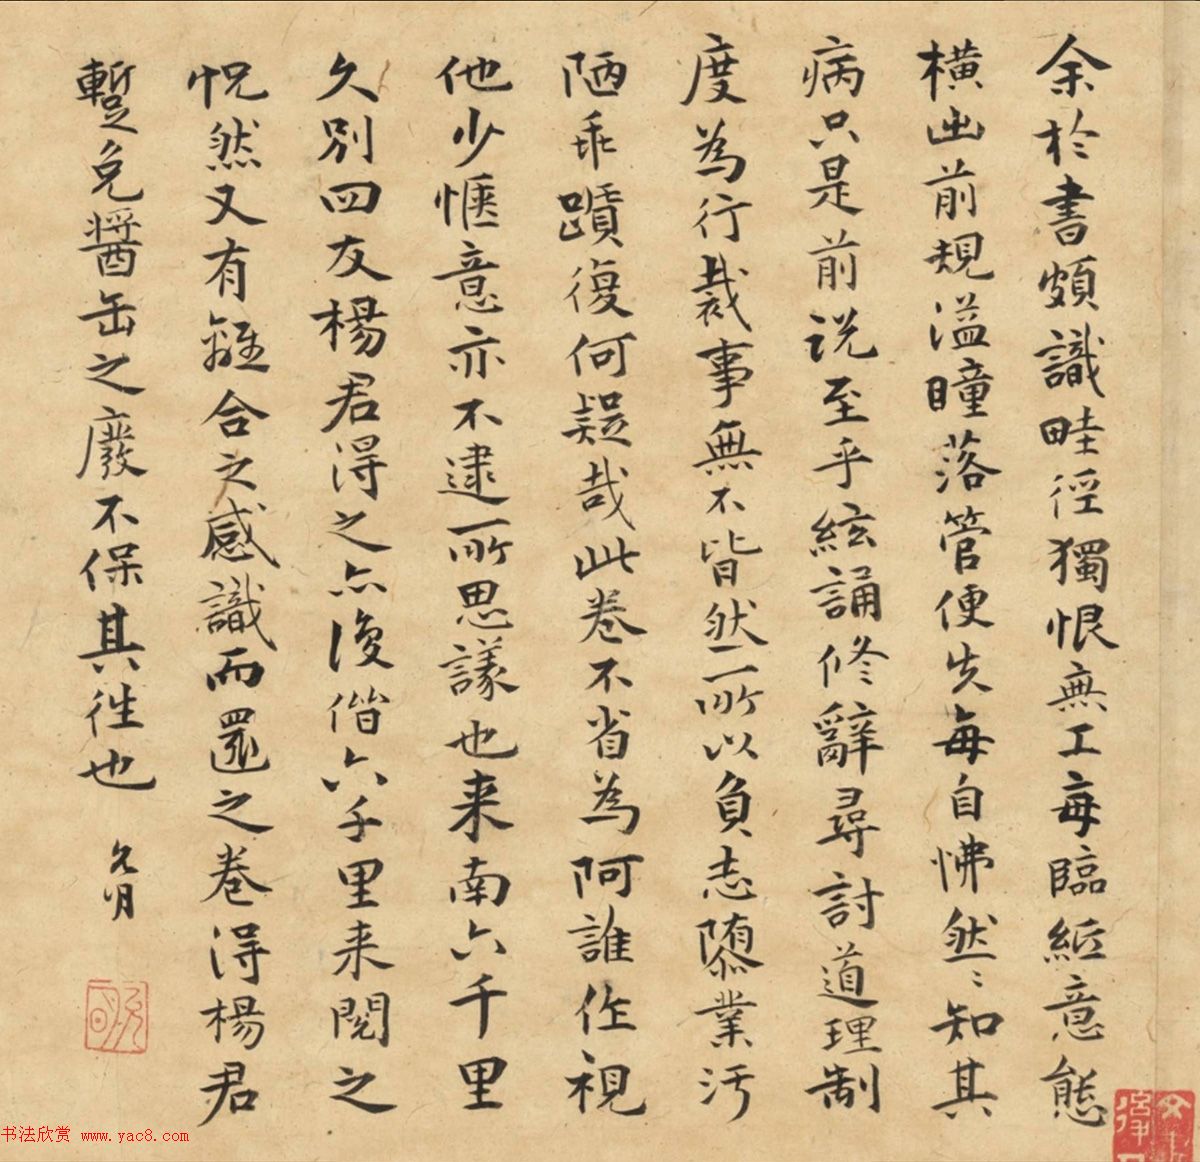 余於書頗識畦徑獨恨無工每臨紙意態
橫出前規溢瞳落管便失每自怫然〻知其
病只是前說至乎絃誦修辭尋討道理制
度為行裁事無不皆然一所以負志隳業汚
陋乖蹟復何疑哉此卷不省為阿誰作視
他少愜意亦不逮所思議也来南六千里
久別四友楊君得之亦復偕六千里来閱之
怳然又有離合之感識而還之卷得楊君
蹔免醬缶之廢不保其往也 允明
允明
书法欣赏 www.yac8.com